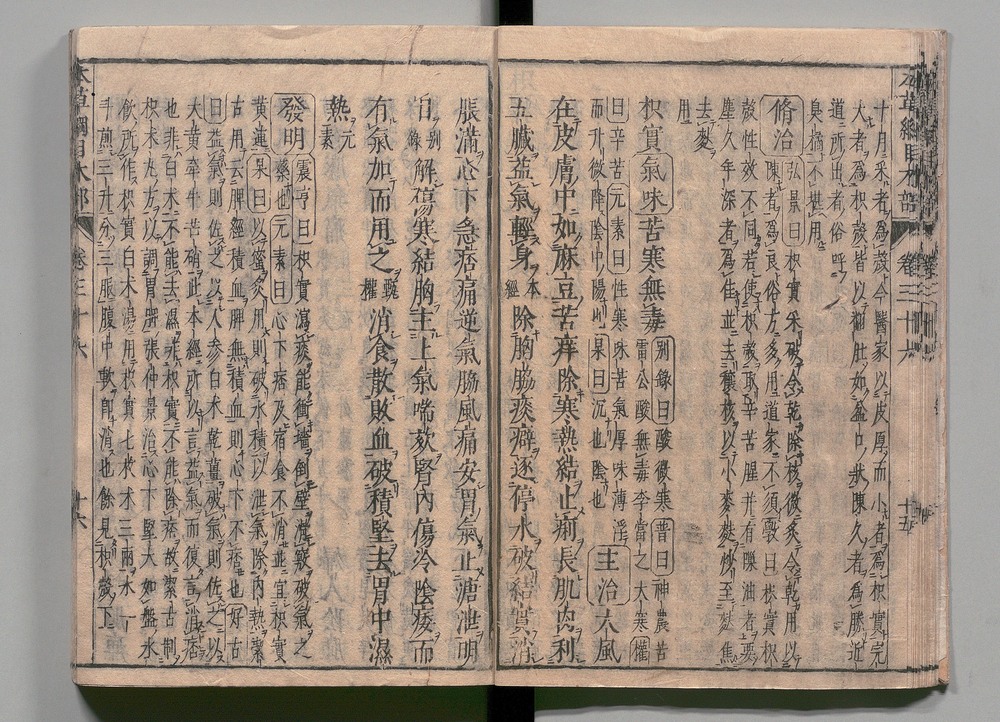 十月采者為殼今醫家以皮厚而小者為枳實完
大者為枳殼皆以翻肚如盆口狀陳久者為勝近
道所出者俗呼
臭橘不堪用
修治 弘景曰枳實采破令乾除核微炙令乾用以
陳者為良俗方多用道家不須斅曰枳實枳
殼性效不同若使枳殼取辛苦腥并有隙油者要
塵久年深者為佳並去穰核以小麥麩炒至麩焦
去麩
用
枳實氣味苦寒無毒 別錄曰酸微寒普曰神農苦
雷公酸無毒李當之大寒權
曰辛苦元素曰性寒味苦氣厚味薄浮
而升微降陰中陽也杲曰沉也陰也 主治大風
在皮膚中如麻豆苦痒除寒熱結止痢長肌肉利
五臟益氣輕身 本經 除胸脇痰癖逐停水破結實消
脹滿心下急痞痛逆氣脇風痛安胃氣止溏泄明
目 別錄 解傷寒結胸主上氣喘欬腎內傷冷陰痿而
有氣加而用之 甄權 消食散敗血破積堅去胃中濕
熱 元素
發明 震亨曰枳實瀉痰能衝墻倒壁滑竅破氣之
藥也元素曰心下痞及宿食不消並宜枳實
黃連杲曰以蜜炙用則破水積以泄氣除內熱潔
古用云脾經積血脾無積血則心下不痞也好古
曰益氣則佐之以人參白朮乾薑破氣則佐之以
大黃牽牛苦硝此本經所以言益氣而復言消痞
也非白朮不能去濕非枳實不能除痞故潔古制
枳朮丸方以調胃脾張仲景治心下堅大如盤水
飲所作枳實白朮湯用枳實七枚朮三兩水一
斗煎三升分三服腹中軟即消也餘見枳殼下
本草綱目木部 卷三十六 十五
本草綱目木部 卷三十六 十六